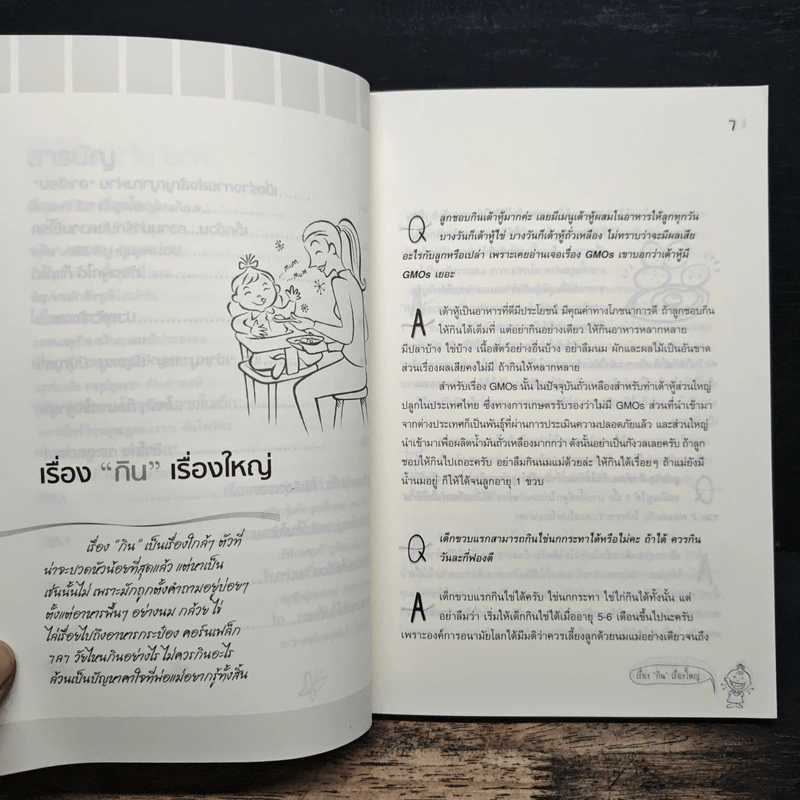 ...MUM
MUM...
เรื่อง “กิน” เรื่องใหญ่
เรื่อง “กิน” เป็นเรื่องใกล้ๆ ตัวที่
น่าจะปวดหัวน้อยที่สุดแล้ว แต่หาเป็น
เช่นนั้นไม่ เพราะมักถูกตั้งคำถามอยู่บ่อยๆ
ตั้งแต่อาหารพื้นๆ อย่างนม กล้วย ไข่
ไล่เรื่อยไปถึงอาหารกระป๋อง คอร์นเฟล็ก
ฯลฯ วัยไหนกินอย่างไร ไม่ควรกินอะไร
ล้วนเป็นปัญหาคาใจที่พ่อแม่อยากรู้ทั้งสิ้น
7
Q ลูกชอบกินเต้าหู้มากค่ะ เลยมีเมนูเต้าหู้ผสมในอาหารให้ลูกทุกวัน
บางวันก็เต้าหู้ไข่ บางวันก็เต้าหู้ถั่วเหลือง ไม่ทราบว่าจะมีผลเสีย
อะไรกับลูกหรือเปล่า เพราะเคยอ่านเจอเรื่อง GMOs เขาบอกว่าเต้าหู้มี
GMOs เยอะ
A เต้าหู้เป็นอาหารที่ดีมีประโยชน์ มีคุณค่าทางโภชนาการดี ถ้าลูกชอบกิน
ให้กินได้เต็มที่ แต่อย่ากินอย่างเดียว ให้กินอาหารหลากหลาย
มีปลาบ้าง ไข่บ้าง เนื้อสัตว์อย่างอื่นบ้าง อย่าลืมนม ผักและผลไม้เป็นอันขาด
ส่วนเรื่องผลเสียคงไม่มี ถ้ากินให้หลากหลาย
สำหรับเรื่อง GMOs นั้น ในปัจจุบันถั่วเหลืองสำหรับทำเต้าหู้ส่วนใหญ่
ปลูกในประเทศไทย ซึ่งทางการเกษตรรับรองว่าไม่มี GMOs ส่วนที่นำเข้ามา
จากต่างประเทศก็เป็นพันธุ์ที่ผ่านการประเมินความปลอดภัยแล้ว และส่วนใหญ่
นำเข้ามาเพื่อผลิตน้ำมันถั่วเหลืองมากกว่า ดังนั้นอย่าเป็นกังวลเลยครับ ถ้าลูก
ชอบให้กินไปเถอะครับ อย่าลืมกินนมแม่ด้วยล่ะ ให้กินได้เรื่อยๆ ถ้าแม่ยังมี
น้ำนมอยู่ ก็ให้ได้จนลูกอายุ 1 ขวบ
Q เด็กขวบแรกสามารถกินไข่นกกระทาได้หรือไม่คะ ถ้าได้ ควรกิน
วันละกี่ฟองดี
A เด็กขวบแรกกินไข่ได้ครับ ไข่นกกระทา ไข่ไก่กินได้ทั้งนั้น แต่
อย่าลืมว่า เริ่มให้เด็กกินไข่ได้เมื่ออายุ 5-6 เดือนขึ้นไปนะครับ
เพราะองค์การอนามัยโลกได้มีมติว่าควรเลี้ยงลูกด้วยนมแม่อย่างเดียวจนถึง
เรื่อง “กิน” เรื่องใหญ่